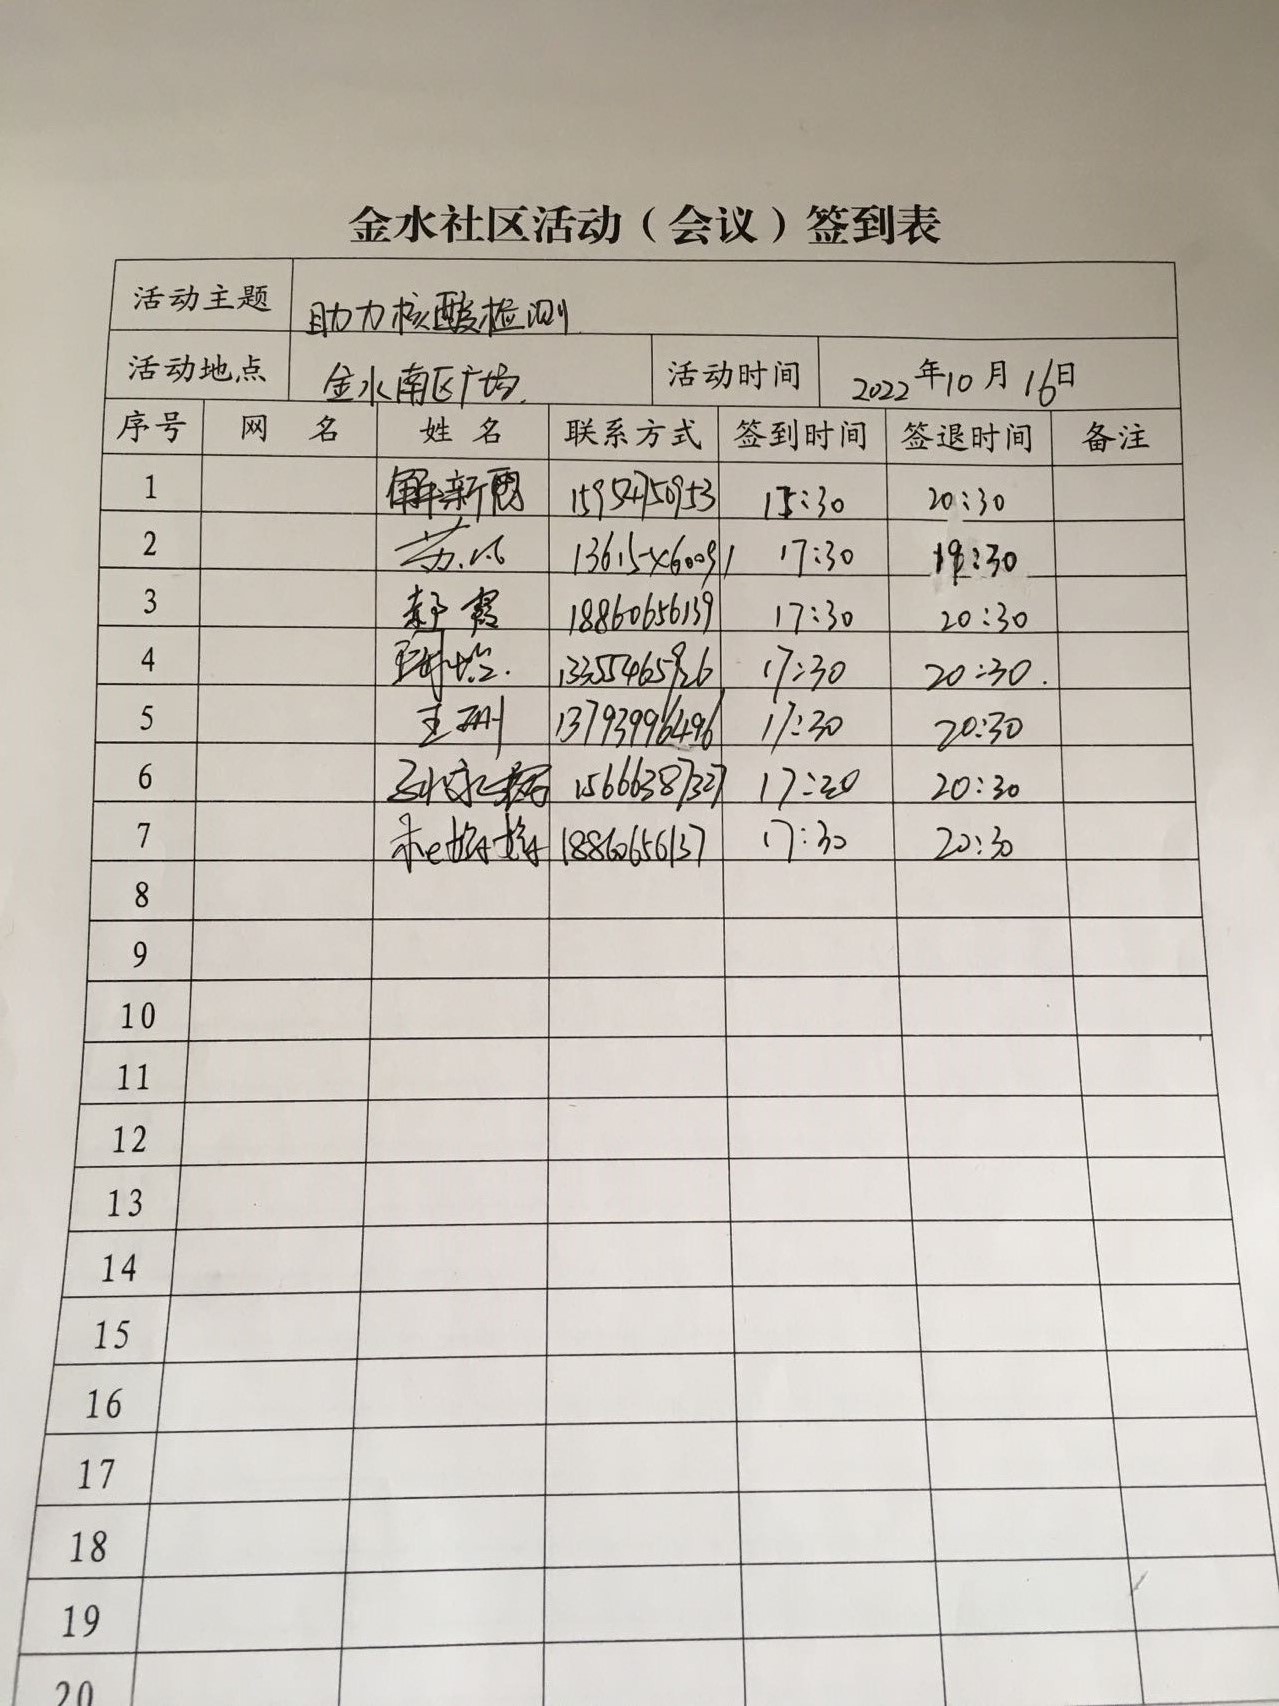 金水社区活动（会议）签到表
活动主题 助力核酸检测
活动地点 金水南区广场 活动时间 2022年10月16日
序号 网 名 姓 名 联系方式 签到时间 签退时间 备注
1 解新 15954750953 15:30 20:30
2 苏 17:30 19:30
3 霞 18860656139 17:30 20:30
4 13355465926 17:30 20:30.
5 王珊 13793996496 17:30 20:30
6 15666387327 17:30 20:30
7 婷婷 18860656137 17:30 20:30
8
9
10
11
12
13
14
15
16
17
18
19
20